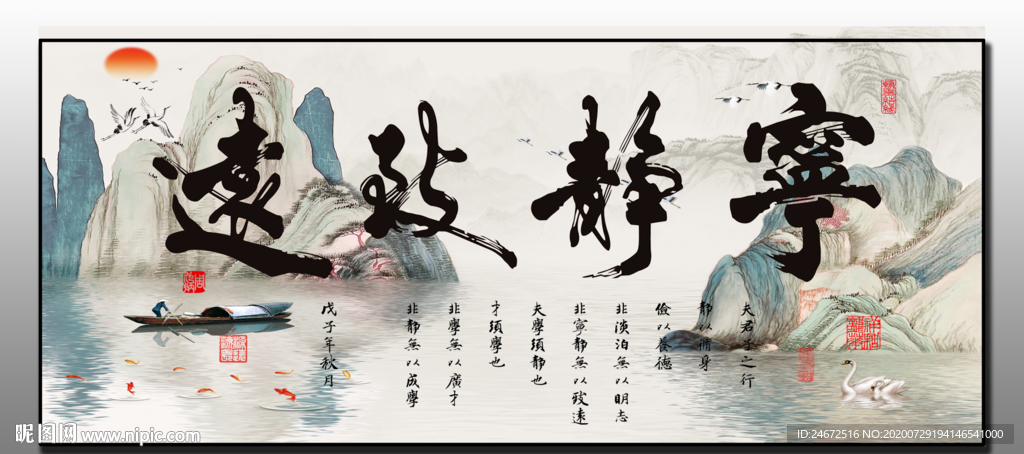 寧靜致遠
夫君子之行
靜以修身
儉以養德
非淡泊無以明志
非寧靜無以致遠
夫學須靜也
才須學也
非學無以廣才
非靜無以成學
戊子年秋月
昵图网 www.nipic.com
ID:24672516 NO:20200729194146541000